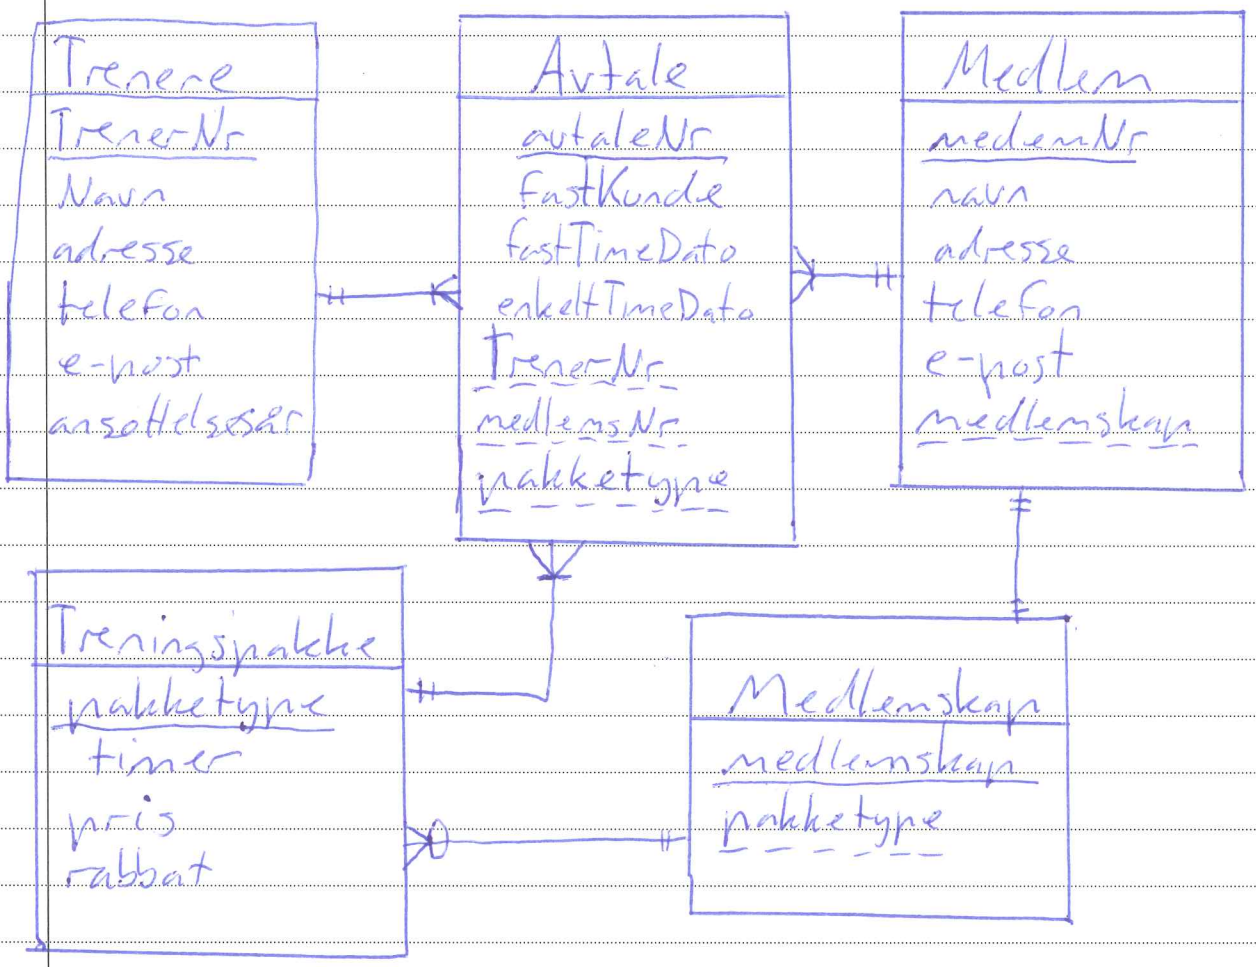 Trenere
TrenerNr
Navn
adresse
telefon
e-post
ansettelsesår
Avtale
avtaleNr
fastKunde
fastTimeDato
enkeltTimeDato
TrenerNr
medlemsNr
pakketype
Medlem
medlemNr
navn
adresse
telefon
e-post
medlemskap
Treningspakke
pakketype
timer
pris
rabbat
Medlemskap
medlemskap
pakketype